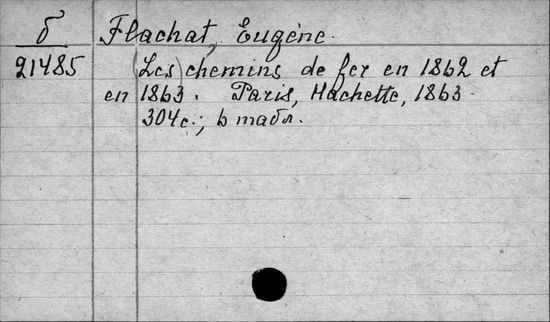 б Flachat, Eugène.
21485 (Les) chemins de fer en 1862 et
en 1863. Paris, Hachette, 1863.
304 с.; 6 табл.